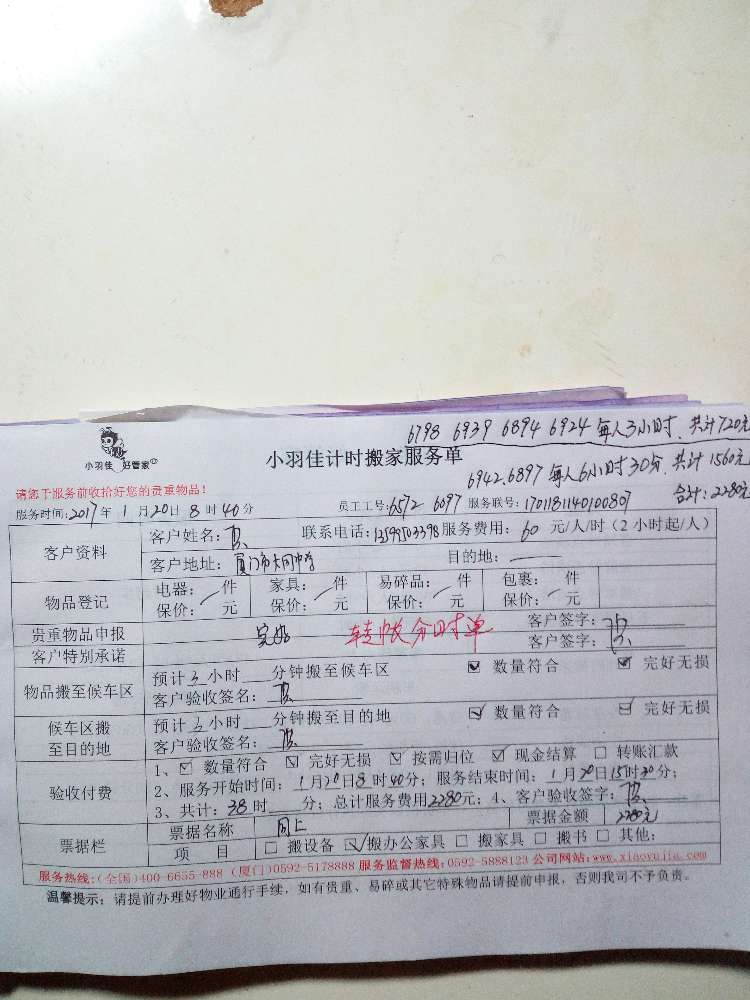 6798 6939 6894 6924 每人3小时.共计720元
小羽佳 好管家
小羽佳计时搬家服务单
6942.6897 每人6小时30分.共计1560元
合计:2280元
请您于服务前收拾好您的贵重物品!
服务时间:2017年1月20日8时40分 员工工号:6572 6097 服务联号:1701181140100807
客户资料 客户姓名: 联系电话: 服务费用:60元/人/时(2小时起/人)
客户地址:厦门市大同中学 目的地:
物品登记 电器: 件 家具: 件 易碎品: 件 包裹: 件
保价: 元 保价: 元 保价: 元 保价: 元
贵重物品申报 完好 转帐分时单 客户签字:
客户特别承诺 客户签字:
物品搬至候车区 预计3小时 分钟搬至候车区 ☑ 数量符合 ☑ 完好无损
客户验收签名:
候车区搬至目的地 预计3小时 分钟搬至目的地 ☑ 数量符合 ☑ 完好无损
客户验收签名:
验收付费 1、☑ 数量符合 ☑ 完好无损 ☑ 按需归位 ☑ 现金结算 □ 转账汇款
2、服务开始时间:1月20日8时40分;服务结束时间:1月20日15时30分;
3、共计:38时 分;总计服务费用2280元;4、客户验收签字:
票据栏 票据名称 同上 票据金额 2280元
项 目 □ 搬设备 ☑ 搬办公家具 □ 搬家具 □ 搬书 □ 其他:
服务热线:(全国)400-6655-888 (厦门)0592-5178888 服务监督热线:0592-5888123 公司网站:www.xiaoyujia.com
温馨提示:请提前办理好物业通行手续,如有贵重、易碎或其它特殊物品请提前申报,否则我司不予负责。